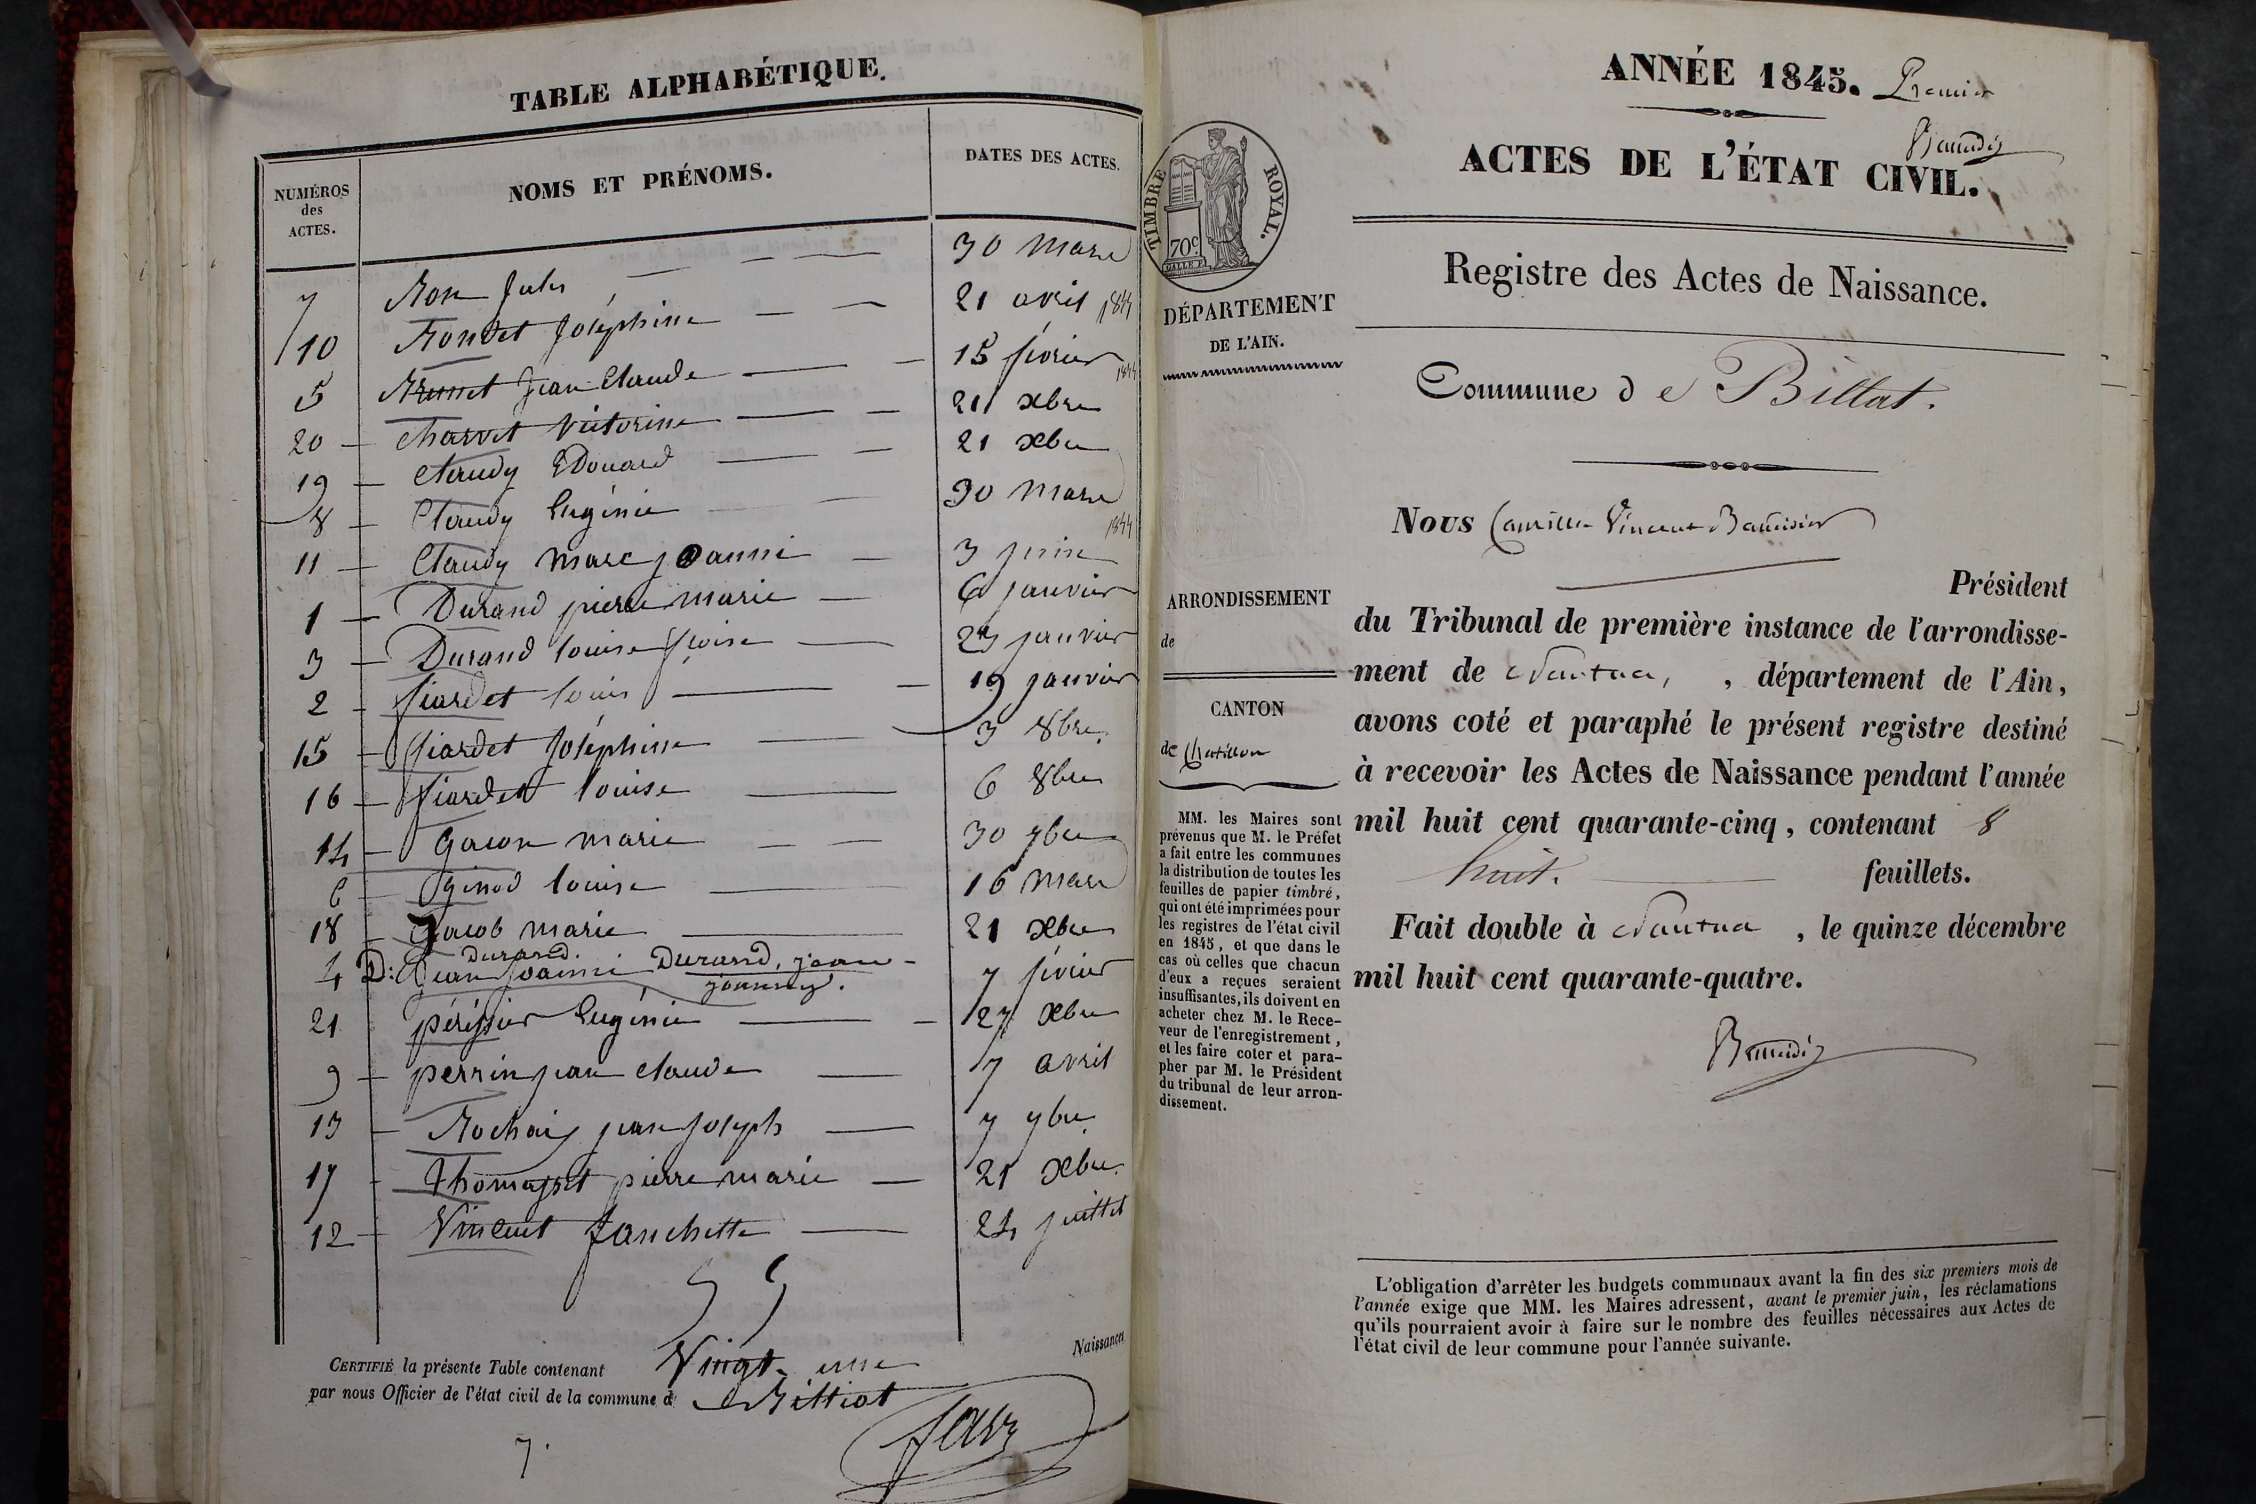 TABLE ALPHABÉTIQUE.
NUMÉROS des ACTES. NOMS ET PRÉNOMS. DATES DES ACTES.
7 Jules 30 Mars
10 Rondet Joséphine 21 avril 1844
5 Jean Claude 15 février 1844
20 Charvet Victorine 21 xbre
19 Claudy Edouard 21 xbre
8 Claudy Eugénie 30 Mars
11 Claudy Marc joanni 3 juin 1844
1 Durand pierre marie 6 janvier
3 Durand louise fçoise janvier
2 fiardet louis 19 janvier
15 fiardet Joséphine 3 8bre
16 fiardet louise 6 8bre
14 Gacon marie 30 9bre
6 Ginod louise 16 Mars
18 Jacob marie 21 xbre
Durand
4 D: Jean Joanni Durand, jean- 7 février
joanny.
21 périssier Eugénie 27 xbre
9 perrin jean claude 7 avril
13 Rochaix jean Joseph 7 9bre
17 Thomasset pierre marie 21 xbre
12 Vincent fanchette 24 juillet
CERTIFIÉ la présente Table contenant Vingt-une Naissances
par nous Officier de l'état civil de la commune de Billiat
7.
ANNÉE 1845. Premier
ACTES DE L'ÉTAT CIVIL.
TIMBRE ROYAL.
70c
DALLE F.
Registre des Actes de Naissance.
DÉPARTEMENT
DE L'AIN.
Commune de Billat.
Nous Camille Vincent
Président
ARRONDISSEMENT
de
du Tribunal de première instance de l'arrondisse-
ment de Nantua, , département de l'Ain,
CANTON
de Chatillon
avons coté et paraphé le présent registre destiné
à recevoir les Actes de Naissance pendant l'année
mil huit cent quarante-cinq, contenant 8
huit. feuillets.
Fait double à Nantua , le quinze décembre
mil huit cent quarante-quatre.
MM. les Maires sont
prévenus que M. le Préfet
a fait entre les communes
la distribution de toutes les
feuilles de papier timbré,
qui ont été imprimées pour
les registres de l'état civil
en 1845, et que dans le
cas où celles que chacun
d'eux a reçues seraient
insuffisantes, ils doivent en
acheter chez M. le Rece-
veur de l'enregistrement,
et les faire coter et para-
pher par M. le Président
du tribunal de leur arron-
dissement.
L'obligation d'arrêter les budgets communaux avant la fin des six premiers mois de
l'année exige que MM. les Maires adressent, avant le premier juin, les réclamations
qu'ils pourraient avoir à faire sur le nombre des feuilles nécessaires aux Actes de
l'état civil de leur commune pour l'année suivante.